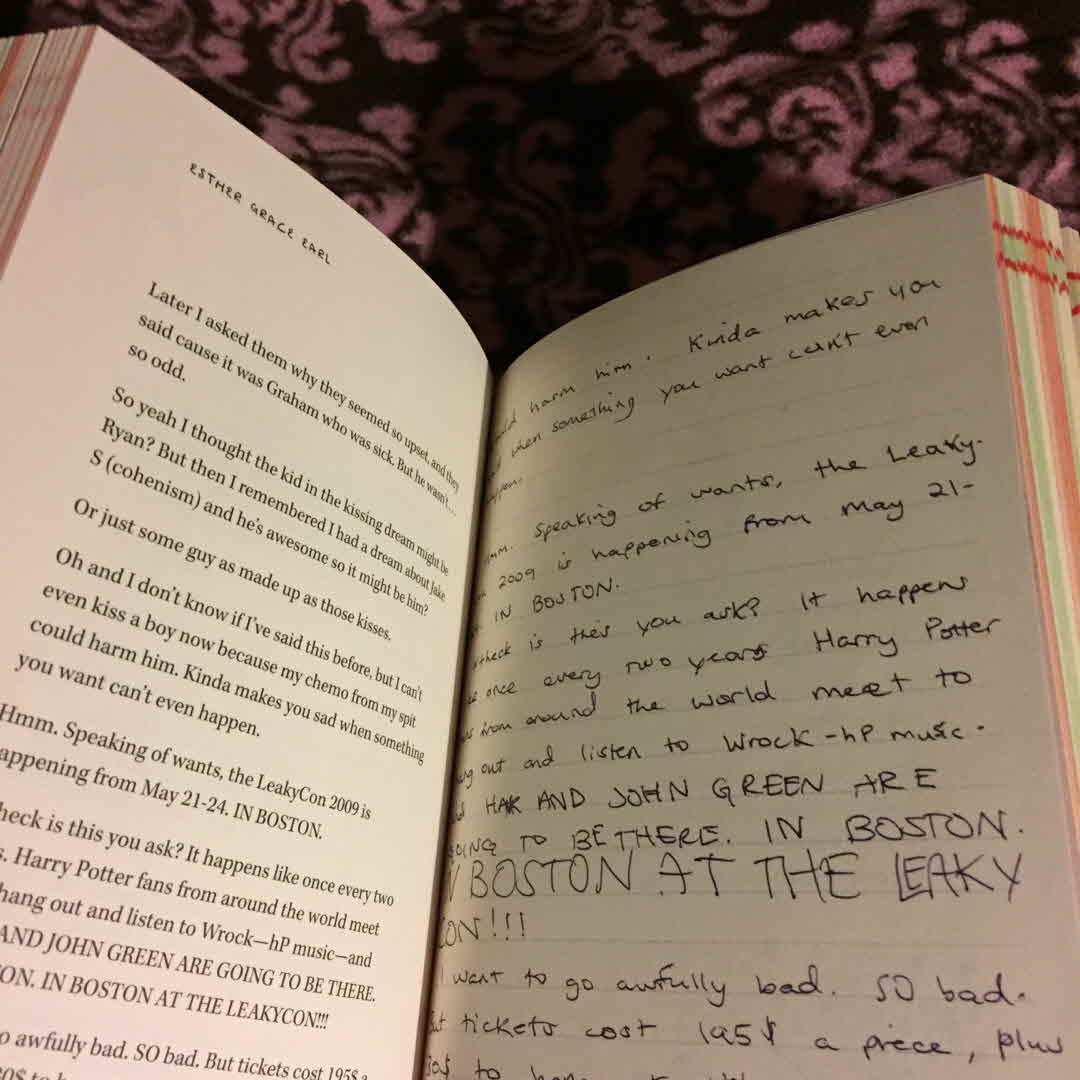 ESTHER GRACE EARL
Later I asked them why they seemed so upset, and they
said cause it was Graham who was sick. But he wasn't...
so odd.
So yeah I thought the kid in the kissing dream might be
Ryan? But then I remembered I had a dream about Jake
S (cohenism) and he's awesome so it might be him?
Or just some guy as made up as those kisses.
Oh and I don't know if I've said this before, but I can't
even kiss a boy now because my chemo from my spit
could harm him. Kinda makes you sad when something
you want can't even happen.
Hmm. Speaking of wants, the LeakyCon 2009 is
appening from May 21-24. IN BOSTON.
heck is this you ask? It happens like once every two
s. Harry Potter fans from around the world meet
hang out and listen to Wrock—hP music—and
AND JOHN GREEN ARE GOING TO BE THERE.
ON. IN BOSTON AT THE LEAKYCON!!!
o awfully bad. SO bad. But tickets cost 195$ a
harm him. Kinda makes you
when something you want can't even
Speaking of wants, the Leaky-
2009 is happening from May 21-
IN BOSTON.
heck is this you ask? It happens
once every two years Harry Potter
from around the world meet to
out and listen to Wrock-hP music.
HAK AND JOHN GREEN ARE
OING TO BE THERE. IN BOSTON.
N BOSTON AT THE LEAKY
CON!!!
I want to go awfully bad. SO bad.
tickets cost 195$ a piece, plus
to